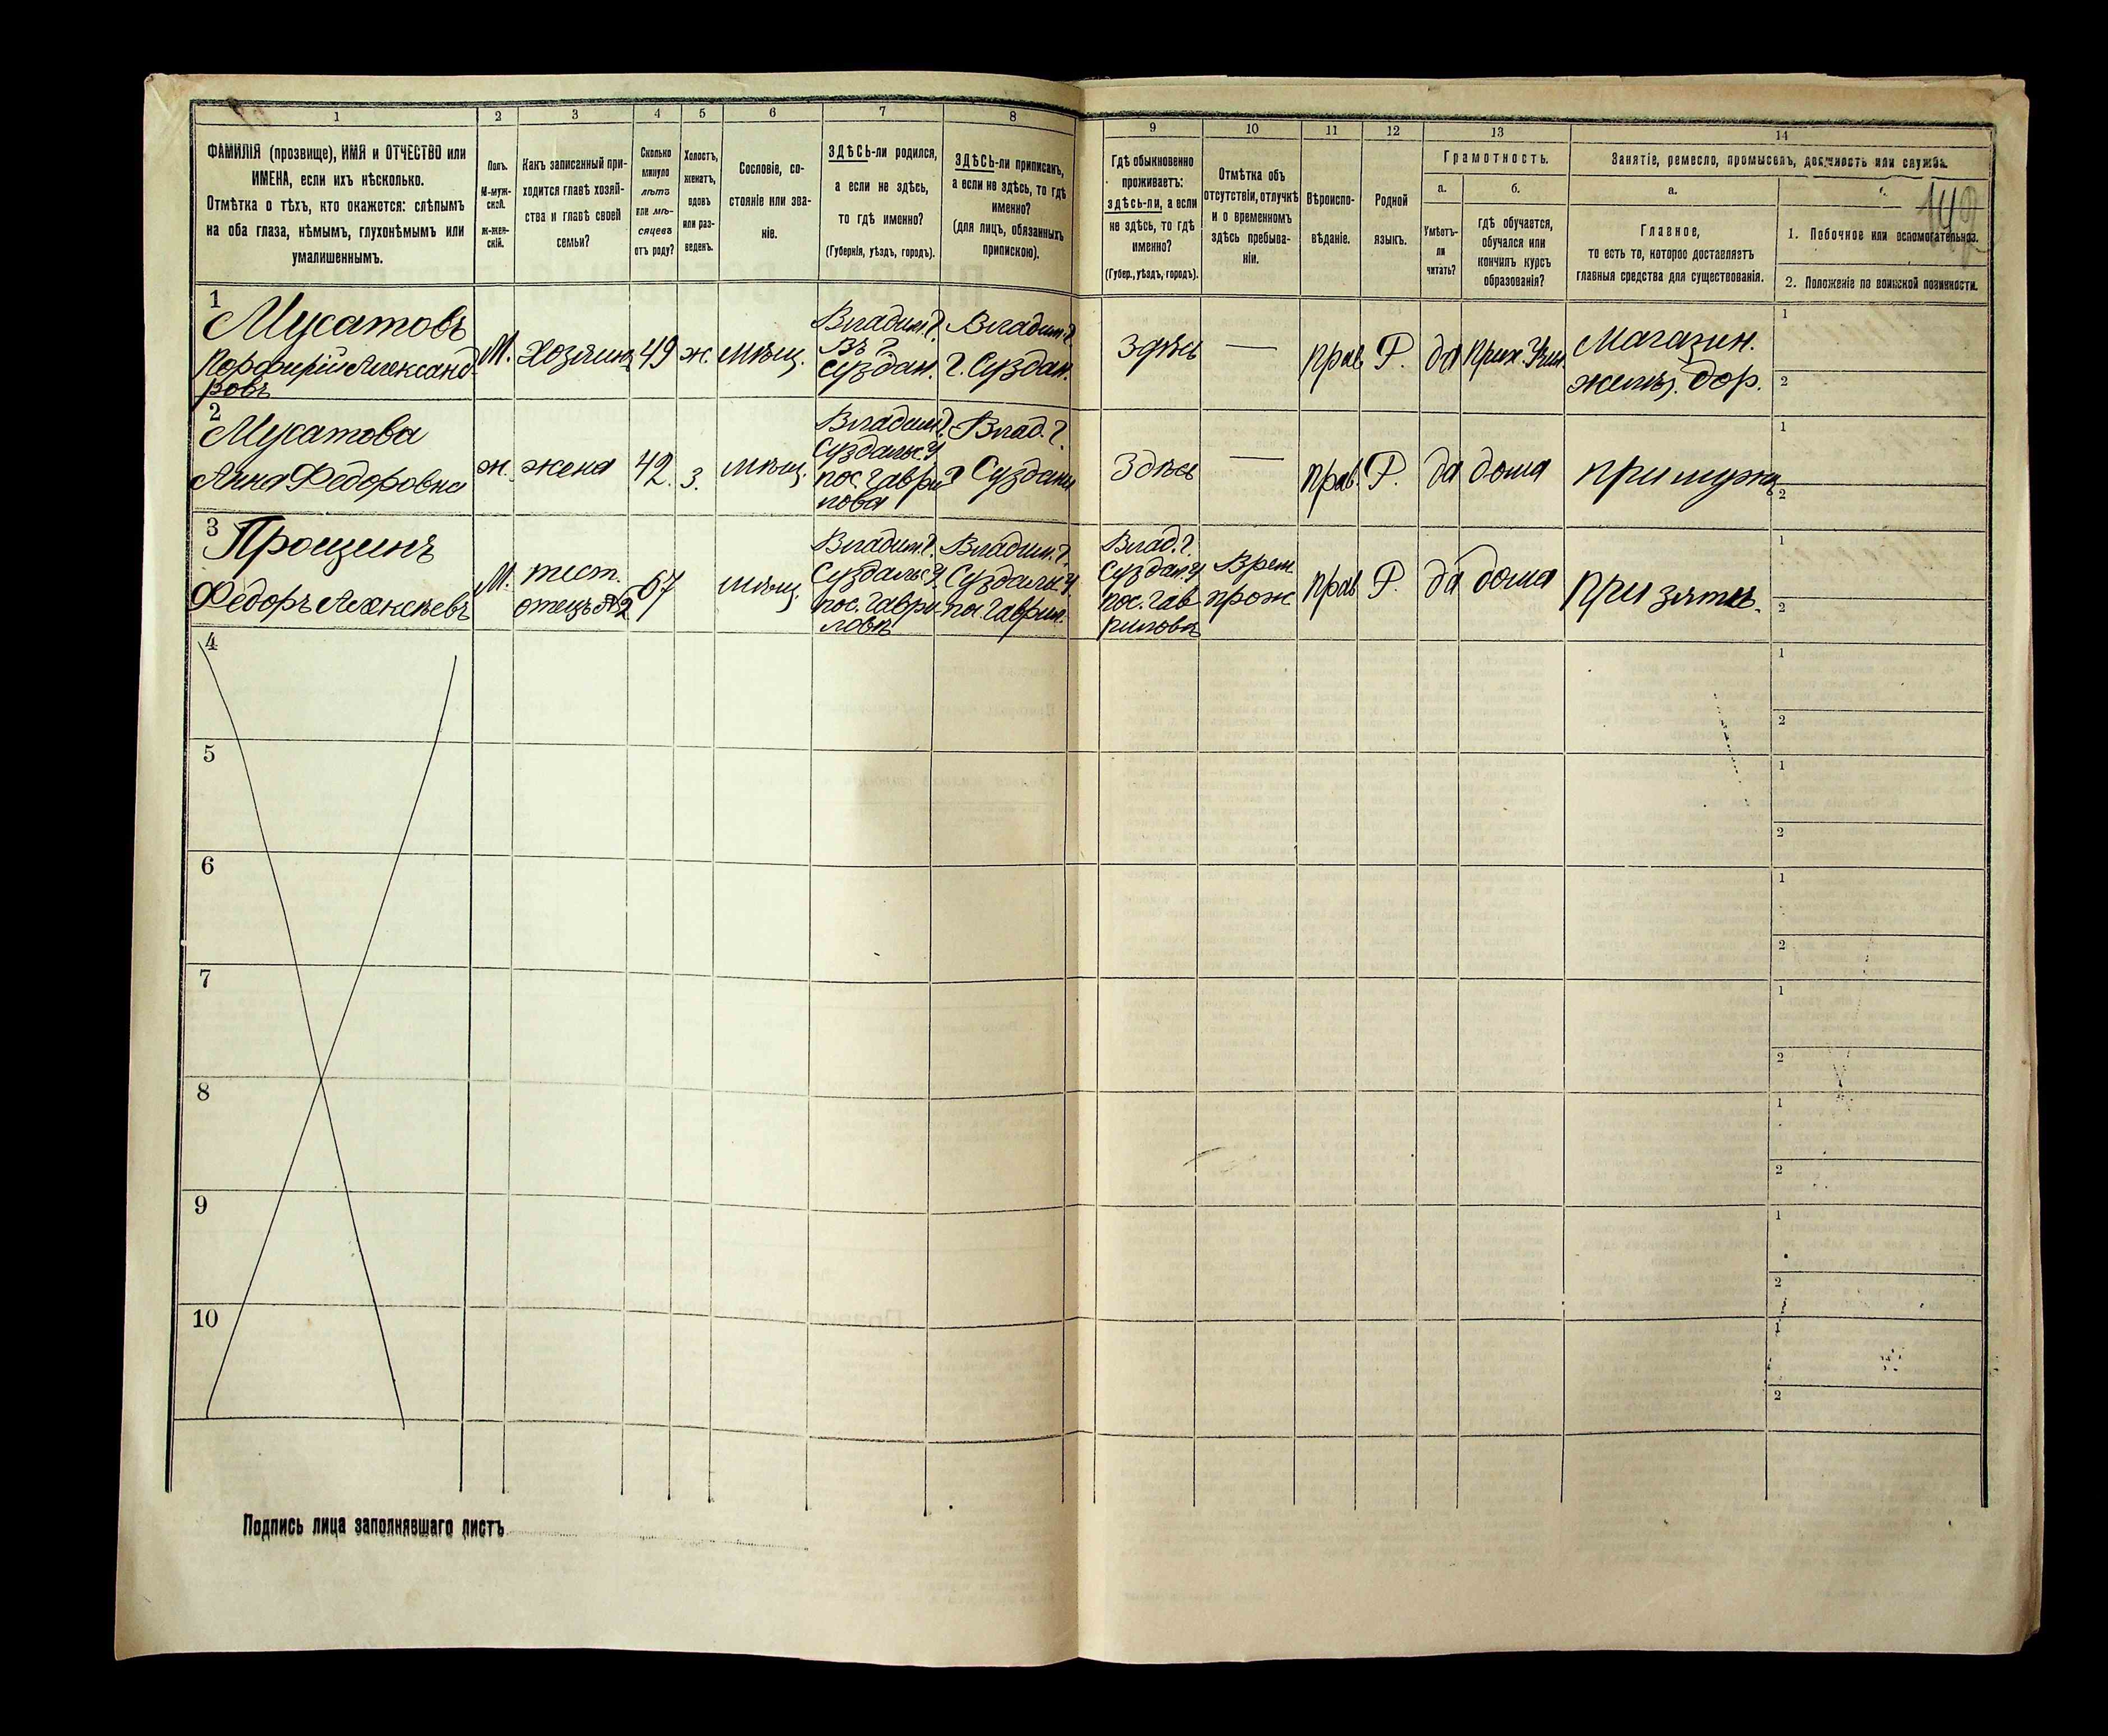 1 2 3 4 5 6 7 8 9 10 11 12 13 14
ФАМИЛІЯ (прозвище), ИМЯ и ОТЧЕСТВО или
ИМЕНА, если ихъ нѣсколько.
Отмѣтка о тѣхъ, кто окажется: слѣпымъ
на оба глаза, нѣмымъ, глухонѣмымъ или
умалишеннымъ.
Полъ.
М-муж-
ской.
Ж-жен-
скій.
Какъ записанный при-
ходится главѣ хозяй-
ства и главѣ своей
семьи?
Сколько
минуло
лѣтъ
или мѣ-
сяцевъ
отъ роду?
Холостъ,
женатъ,
вдовъ
или раз-
веденъ.
Сословіе, со-
стояніе или зва-
ніе.
ЗДѢСЬ-ли родился,
а если не здѣсь,
то гдѣ именно?
(Губернія, уѣздъ, городъ).
ЗДѢСЬ-ли приписанъ,
а если не здѣсь, то гдѣ
именно?
(для лицъ, обязанныхъ
припискою).
Гдѣ обыкновенно
проживаетъ:
здѣсь-ли, а если
не здѣсь, то гдѣ
именно?
(Губер., уѣздъ, городъ).
Отмѣтка объ
отсутствіи, отлучкѣ
и о временномъ
здѣсь пребыва-
ніи.
Вѣроиспо-
вѣданіе.
Родной
языкъ.
Грамотность.
а.
Умѣетъ-
ли
читать?
б.
гдѣ обучается,
обучался или
кончилъ курсъ
образованія?
Занятіе, ремесло, промыселъ, должность или служба.
а.
Главное,
то есть то, которое доставляетъ
главныя средства для существованія.
1. Побочное или вспомогательное.
2. Положеніе по воинской повинности.
1
Мусатовъ
Порфирій Александ
ровъ
М.
Хозяинъ
49
ж.
мѣщ.
Владим. г.
Въ г.
Суздал.
Владим. г.
г. Суздал.
Здѣсь
—
прав
Р.
да
Прих. Учил.
Магазин.
желѣз. дор.
1
2
2
Мусатова
Анна Федоровна
ж.
жена
42
з.
мѣщ.
Владим. г.
Суздальс. у
пос. Гаври
лова
Влад. г.
г Суздаль
Здѣсь
—
прав
Р.
да
дома
при мужѣ
1
2
3
Прошинъ
Федоръ Алексѣевъ
М.
тест.
отецъ №2
67
мѣщ.
Владим. г.
Суздальс. у
пос. Гаври
ловѣ
Владим. г.
Суздальс. у
пос. Гаврил.
Влад. г.
Суздал. у
пос. Гав
рилова
Врем.
прож
прав
Р.
да
дома
при зятѣ.
1
2
4
1
2
5
1
2
6
1
2
7
1
2
8
1
2
9
1
2
10
1
2
Подпись лица заполнявшаго листъ